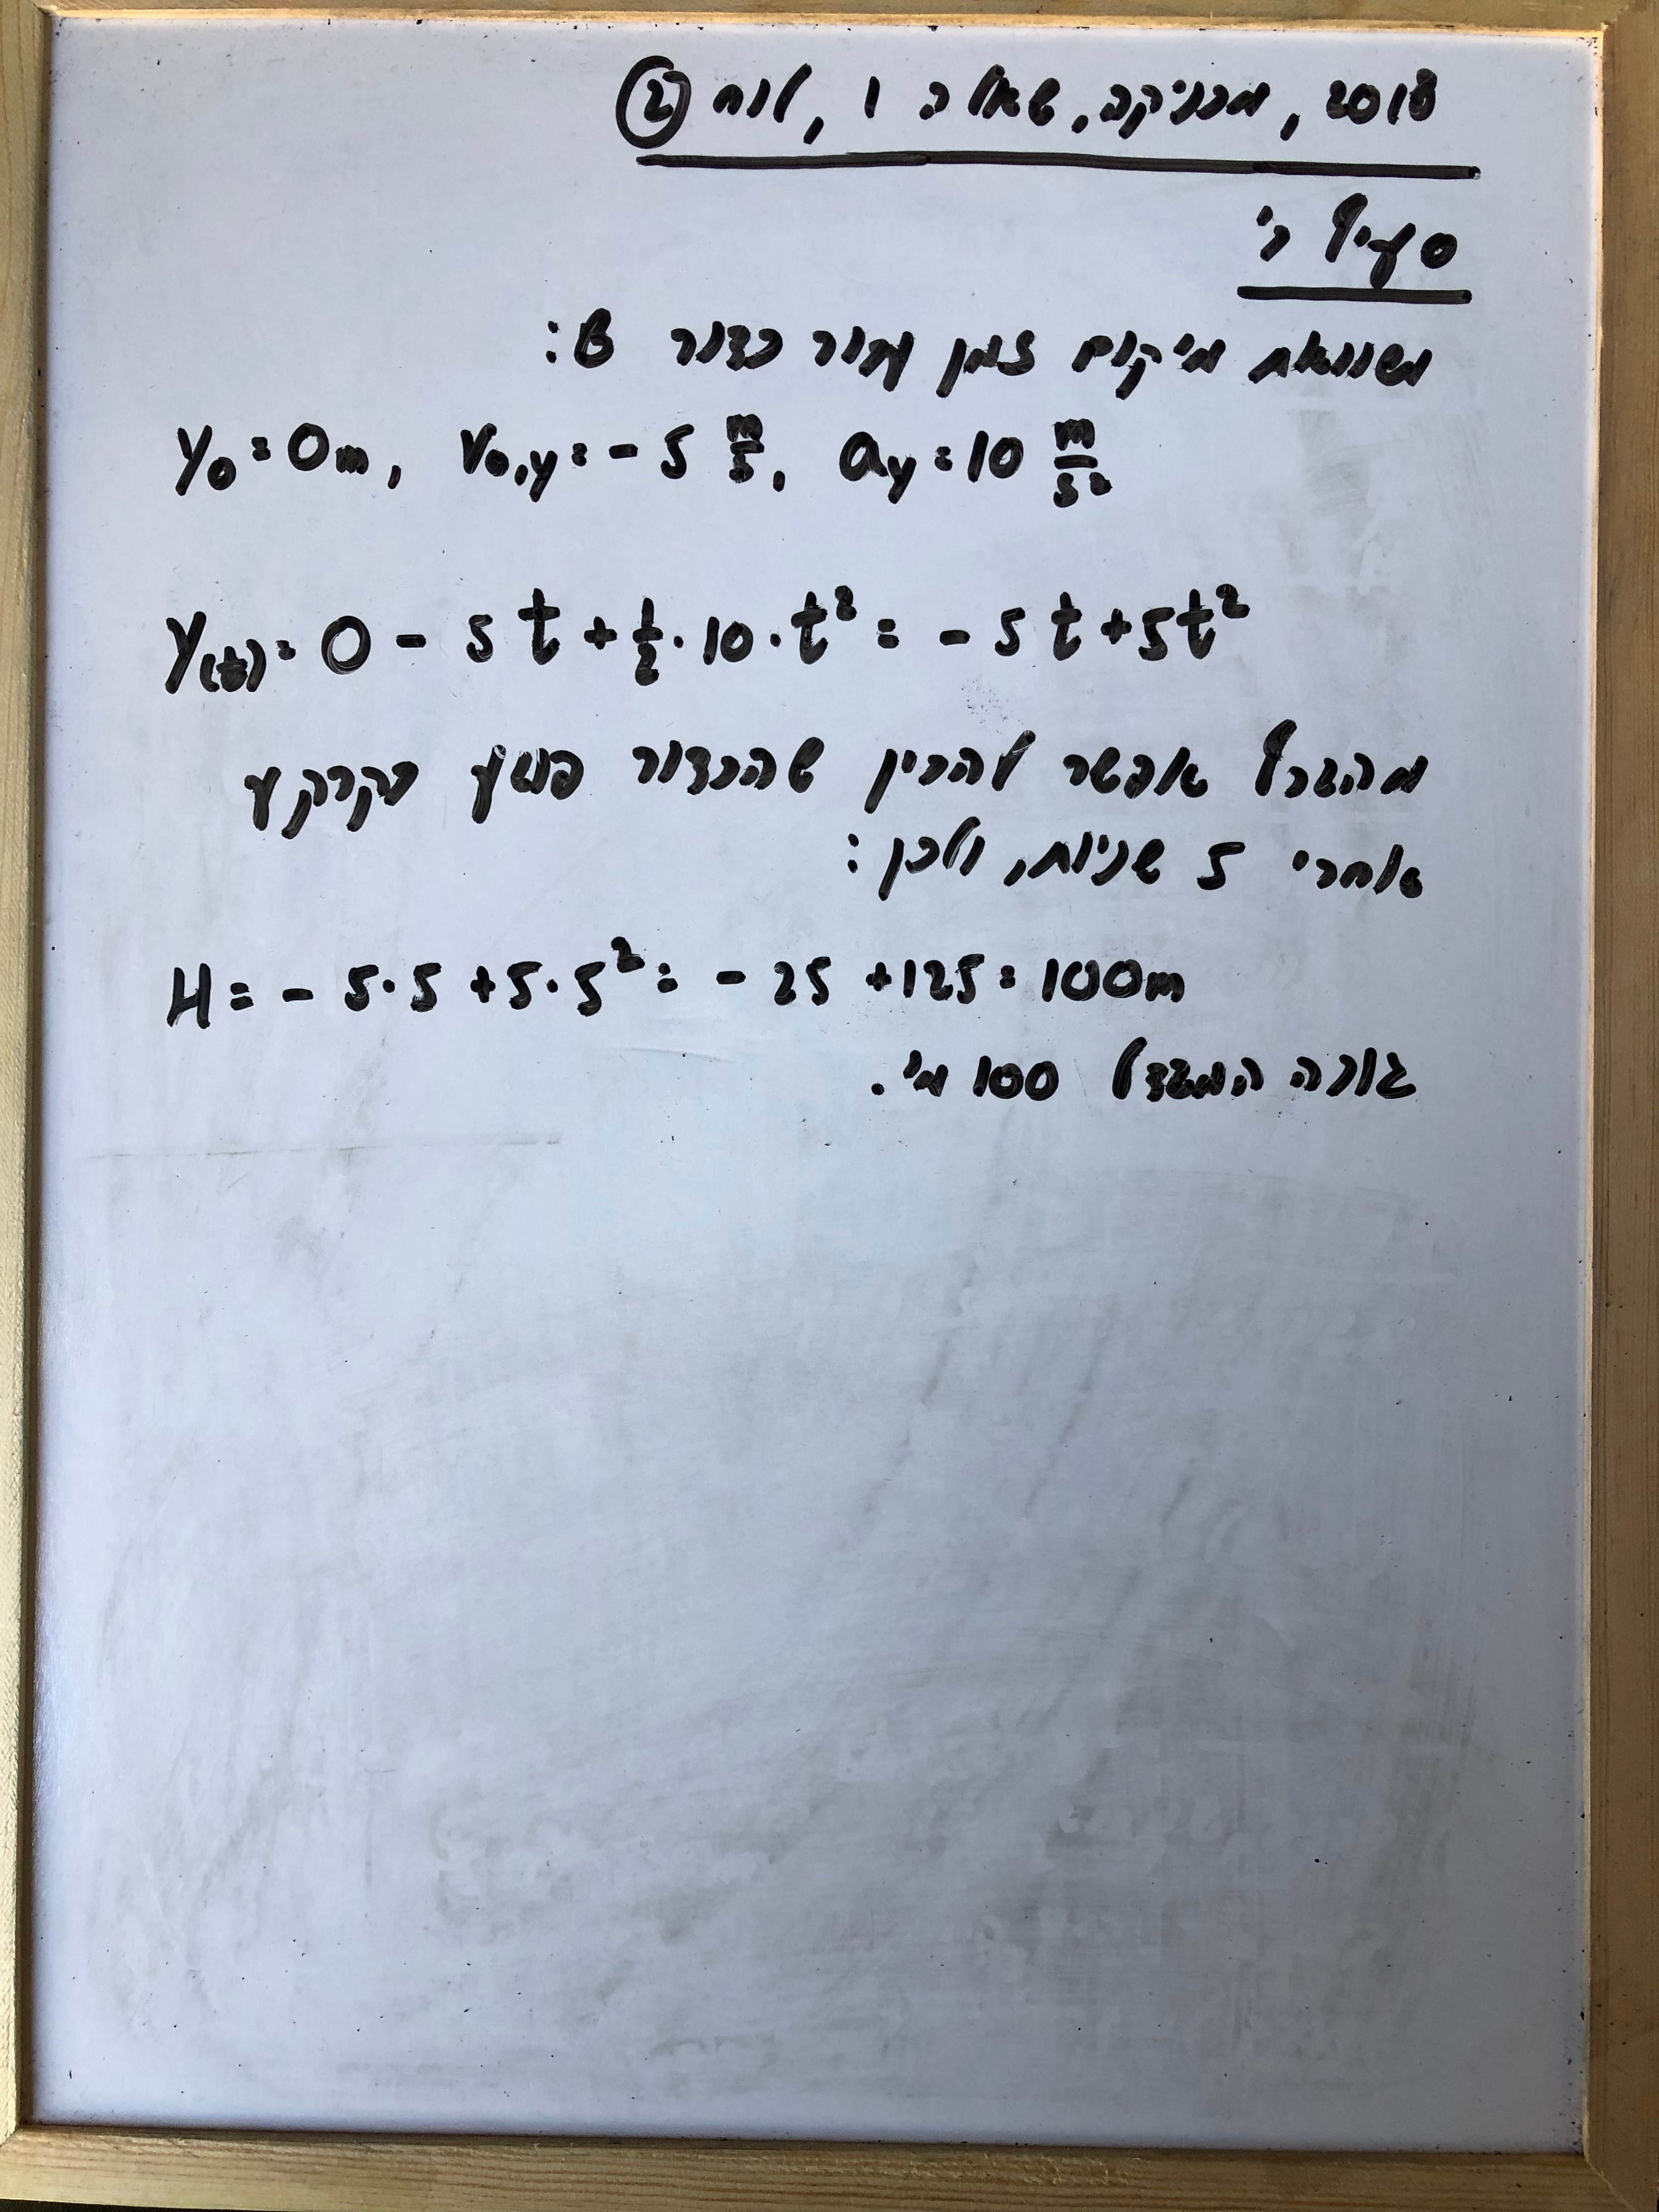 2018, מכניקה, שאלה 1, לוח 2
סעיף ג'
משוואת מיקום זמן עבור כדור B:
y₀ = 0m, v₀,y = -5 m/s, ay = 10 m/s²
y(t) = 0 - 5t + 1/2 · 10 · t² = -5t + 5t²
מהגרף אפשר להבין שהכדור פוגע בקרקע
אחרי 5 שניות, ולכן:
H = -5·5 + 5·5² = -25 + 125 = 100m
גובה המגדל 100 מ'.